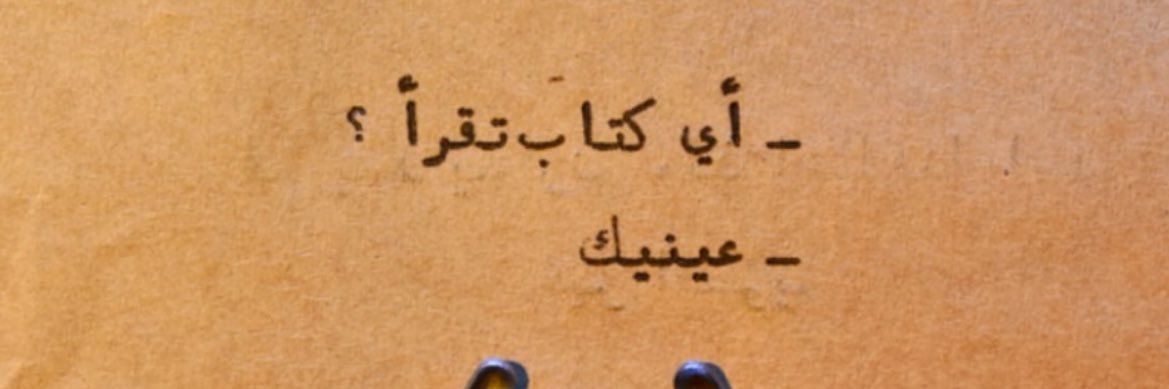 ـ أي كتاب تقرأ ؟
ـ عينيك